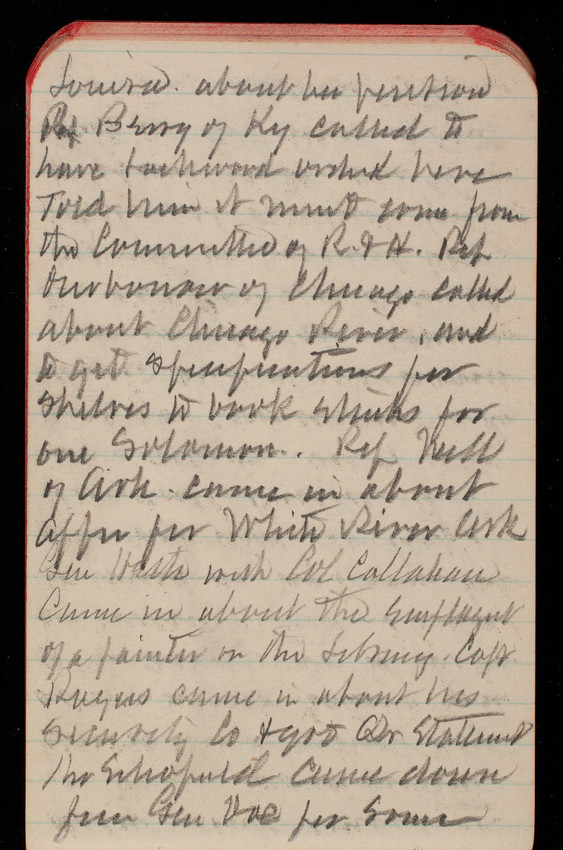 Louisa. about her position
Rep Berry of Ky called to
have Lockwood ordered here
Told him it must come from
the Committee of R. & H. Rep
of Chicago called
about Chicago River, and
to get specifications for
shelves to book stacks for
one Solomon. Rep Neill
of Ark. came in about
appn for White River Ark
Gen with Col Callahan
Came in about the employt
of a painter on the Library. Capt
Rogers came in about his
Security Co & got Qr Statement
Mr Schofield came down
from Gen for some